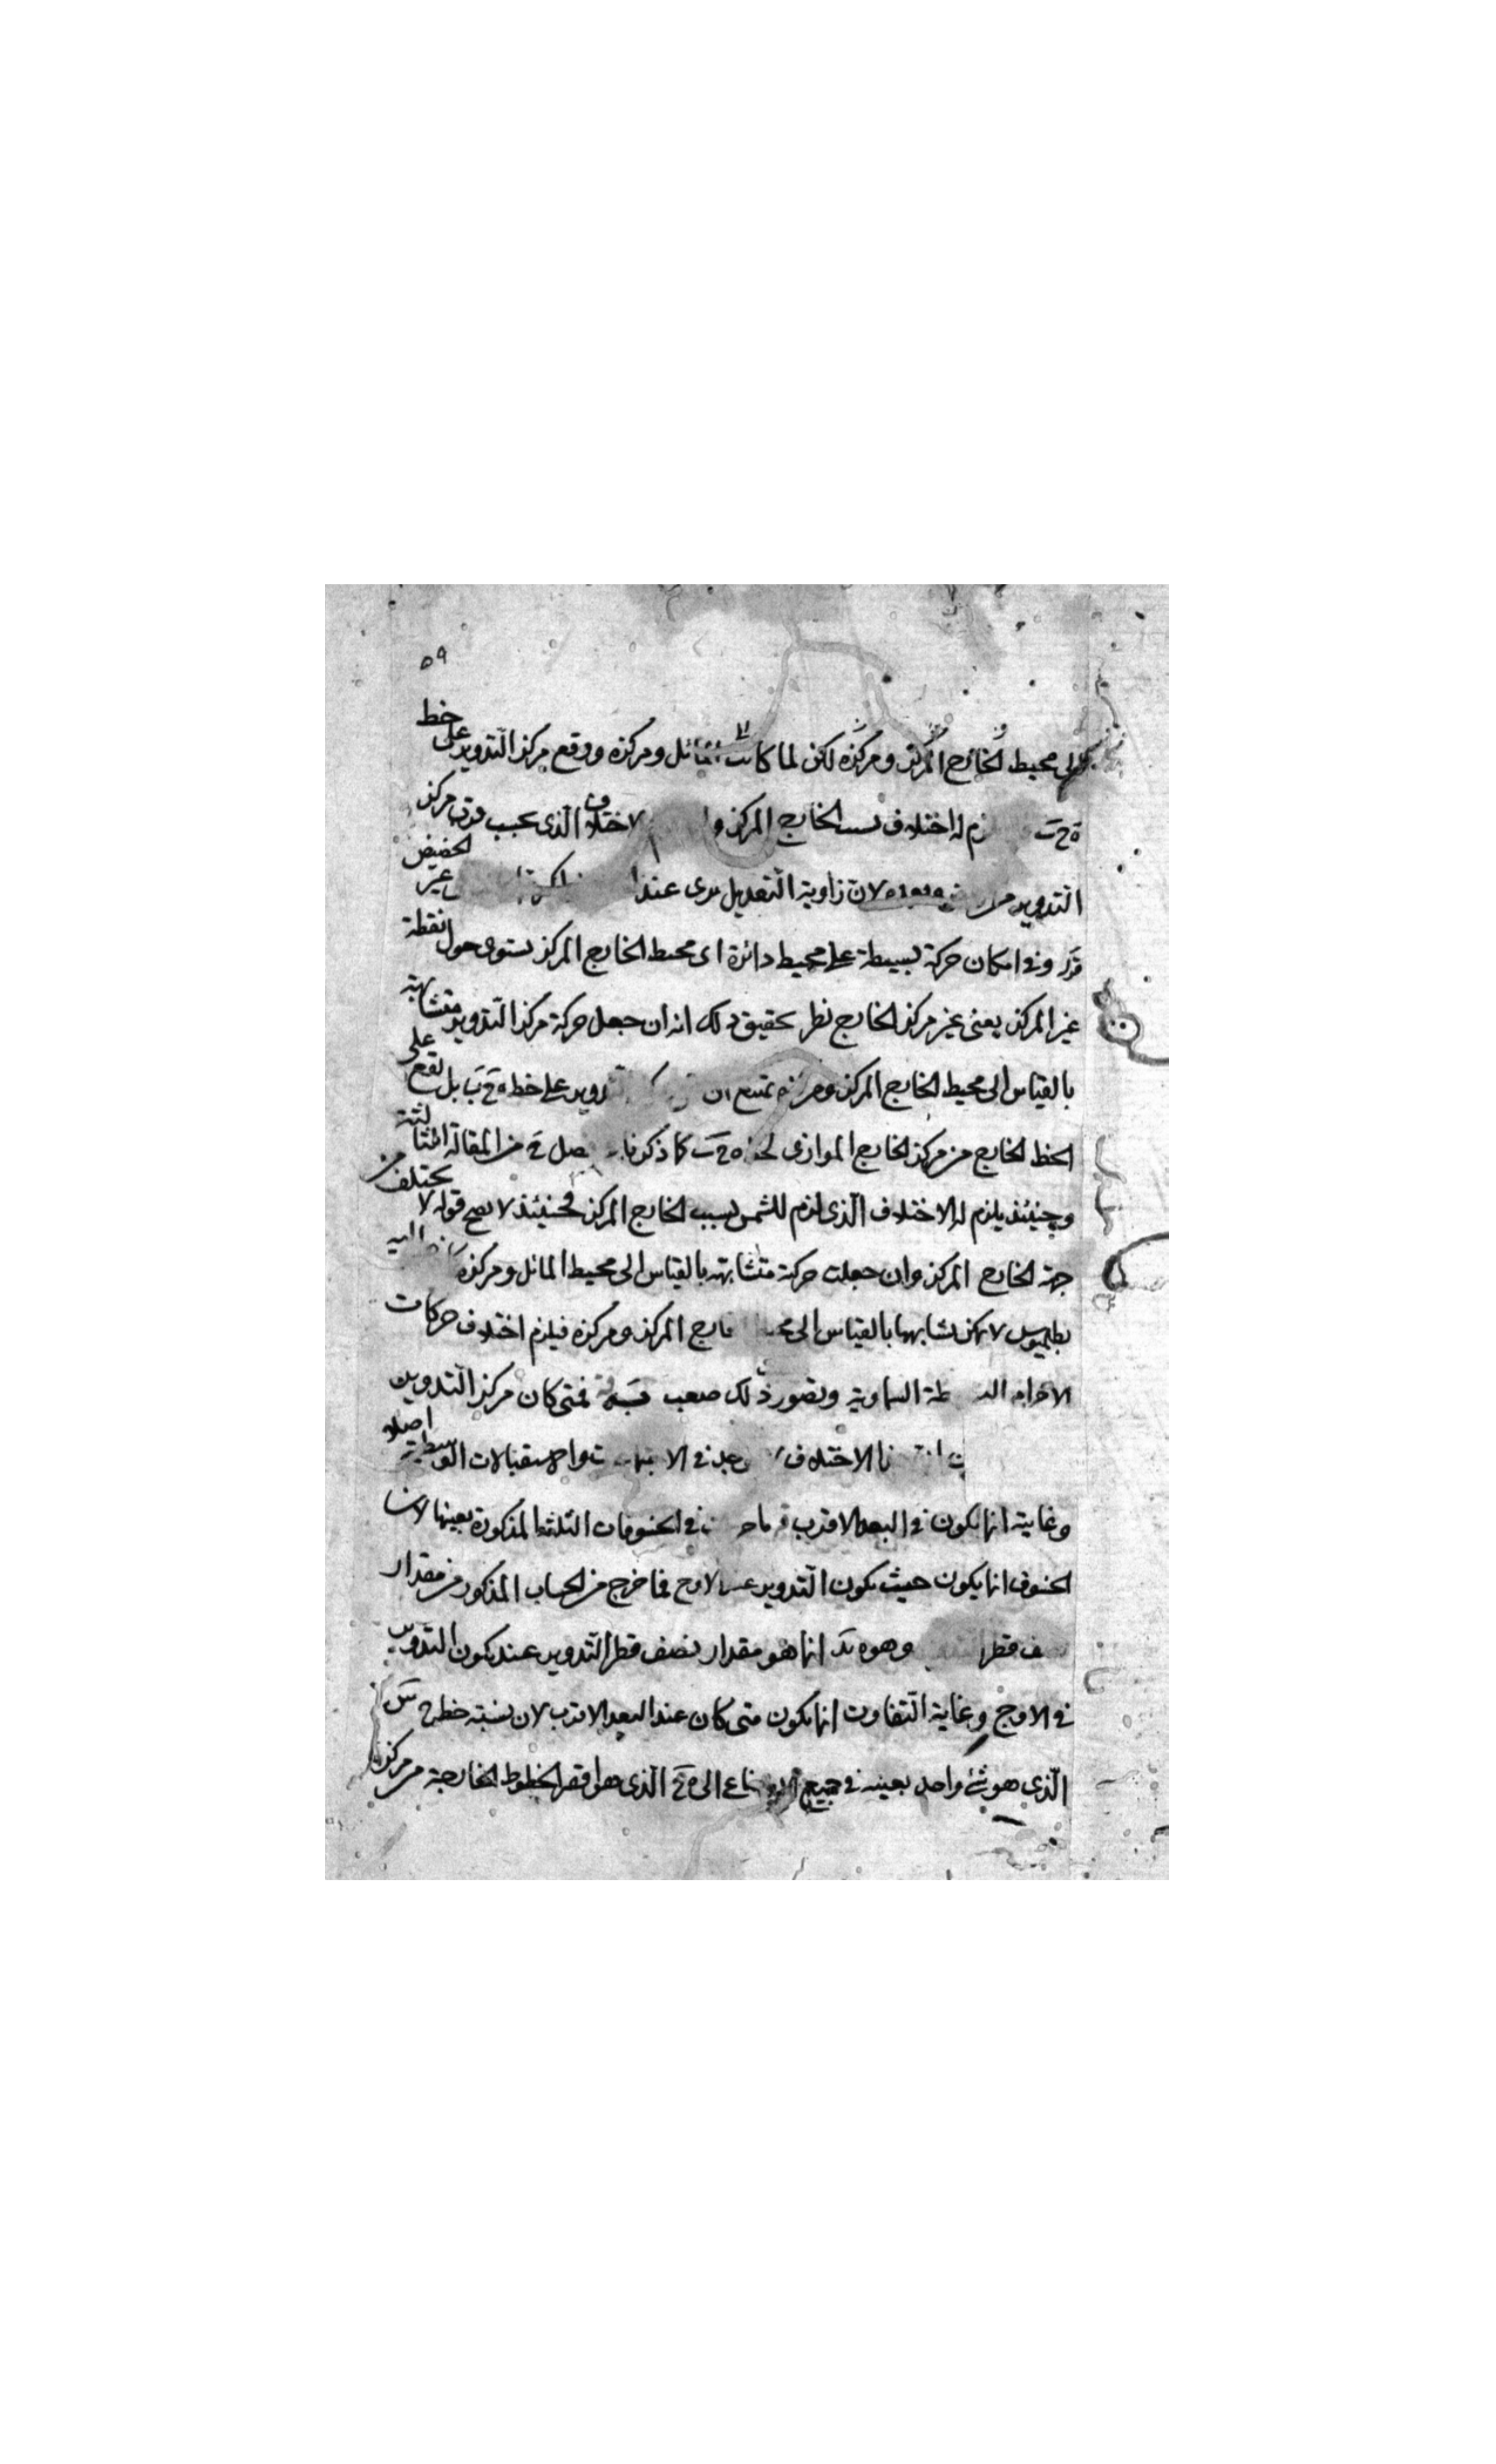 ٥٩
الى محيط الخارج المركز ومركزه لكن لما كانت المائل ومركزه ووقع مركز التدوير على خط
ه ح ب اختلاف بسبب الخارج المركز الاختلاف الذي بحسب قرب مركز
التدوير لان زاوية التعديل يرى عند الحضيض غير
قدر وفي امكان حركة بسيطة على محيط دائرة اى محيط الخارج المركز يستوى حول نقطة
غير المركز يعنى غير مركز الخارج نظر تحقيق ذلك انه ان جعل حركة مركز التدوير متشابهة
بالقياس الى محيط الخارج المركز ومركزه يمتنع ان التدوير على خط ه ح ب بل يقع على
الخط الخارج من مركز الخارج الموازى لخط ه ح ب كما ذكرنا من المقالة الثالثة
وحينئذ يلزم له الاختلاف الذى لزم للشمس بسبب الخارج المركز فحينئذ لا يصح قوله لا يختلف من
جهة الخارج المركز وان جعلت حركة متشابهة بالقياس الى محيط المائل ومركزه اليه
بطلميوس لا يمكن تشابهها بالقياس الى محيط الخارج المركز ومركزه فيلزم اختلاف حركات
الاجرام السماوية وتصور ذلك صعب فمتى كان مركز التدوير
الاختلاف فى والاستقبالات الوسطية اصلا
وغايته انما يكون فى البعد الاقرب فى الخسوفات الثلثة المذكورة بعينها لان
الخسوف انما يكون حيث يكون التدوير عند الاوج فما خرج من الحساب المذكور من مقدار
نصف قطر التدوير وهو ه يد انما هو مقدار نصف قطر التدوير عند كون التدوير
فى الاوج وغاية التفاوت انما يكون متى كان عند البعد الاقرب لان نسبة خط ح س
الذى هو شئ واحد بعينه فى جميع الاوضاع الى ه ح الذى هو اقصر الخطوط الخارجة من مركز